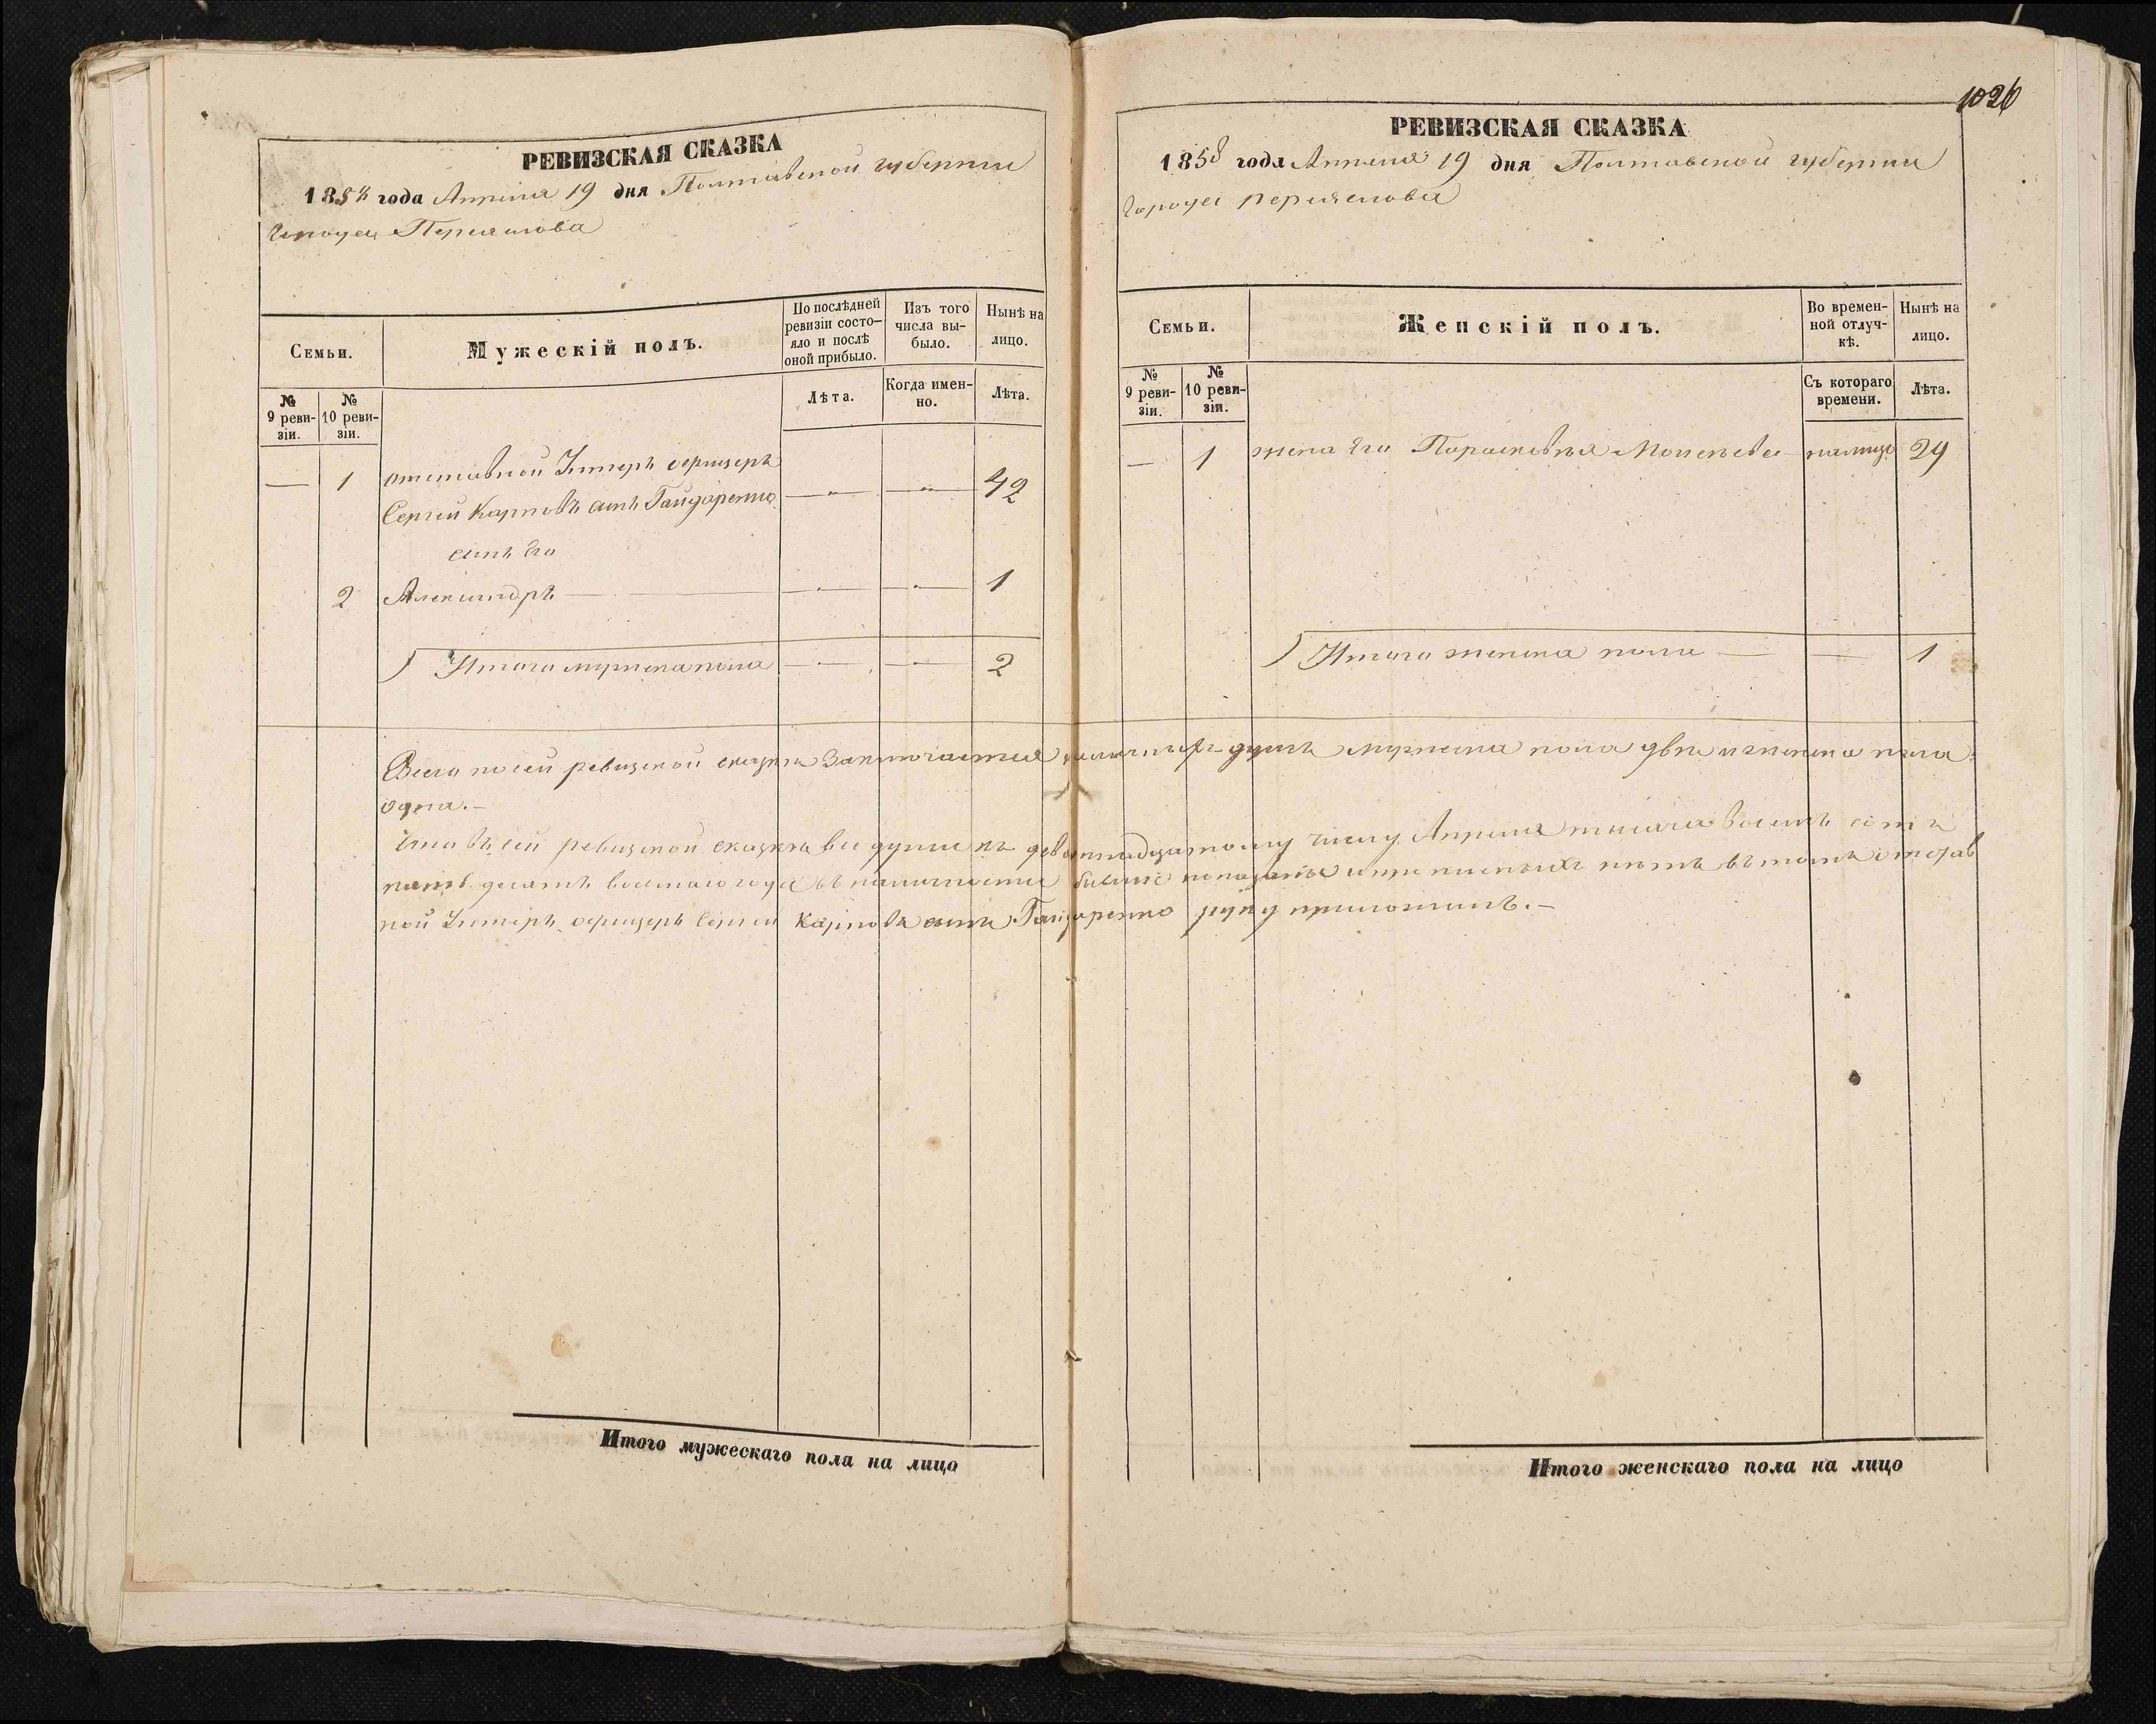 РЕВИЗСКАЯ СКАЗКА
1858 года Апреля 19 дня Полтавской губернии
города Переяслова
Семьи.
Мужескій полъ.
По послѣдней ревизіи состо-
яло и послѣ оной прибыло.
Изъ того числа вы-
было.
Нынѣ на лицо.
№ 9 реви-
зіи.
№ 10 реви-
зіи.
Лѣта.
Когда имен-
но.
Лѣта.
— 1 отставной Унтеръ офицеръ
Сергей Карповъ сынъ Гайдаренко — " — — " — 42
сынъ его
2 Александръ — — — 1
Итого мужеска пола — — 2
Итого мужескаго пола на лицо
1026
РЕВИЗСКАЯ СКАЗКА
1858 года Апреля 19 дня Полтавской губернии
города Переяслова
Семьи.
Женскій полъ.
Во времен-
ной отлуч-
кѣ.
Нынѣ на лицо.
№ 9 реви-
зіи.
№ 10 реви-
зіи.
Съ котораго времени.
Лѣта.
— 1 жена его Парасковья на лицо 29
Итого женска пола — — 1
Всего по сей ревизской сказке заключается наличныхъ душъ мужеска пола две и женска пола
одна.—
Что въ сей ревизской сказке все души къ девятнадцатому числу Апреля тысяча восемь сотъ
пять десятъ восмаго года въ наличности бывшие показаны и прописныхъ нетъ въ томъ отстав
ной Унтеръ офицеръ Сергей Карповъ сынъ Гайдаренко руку приложилъ.—
Итого женскаго пола на лицо